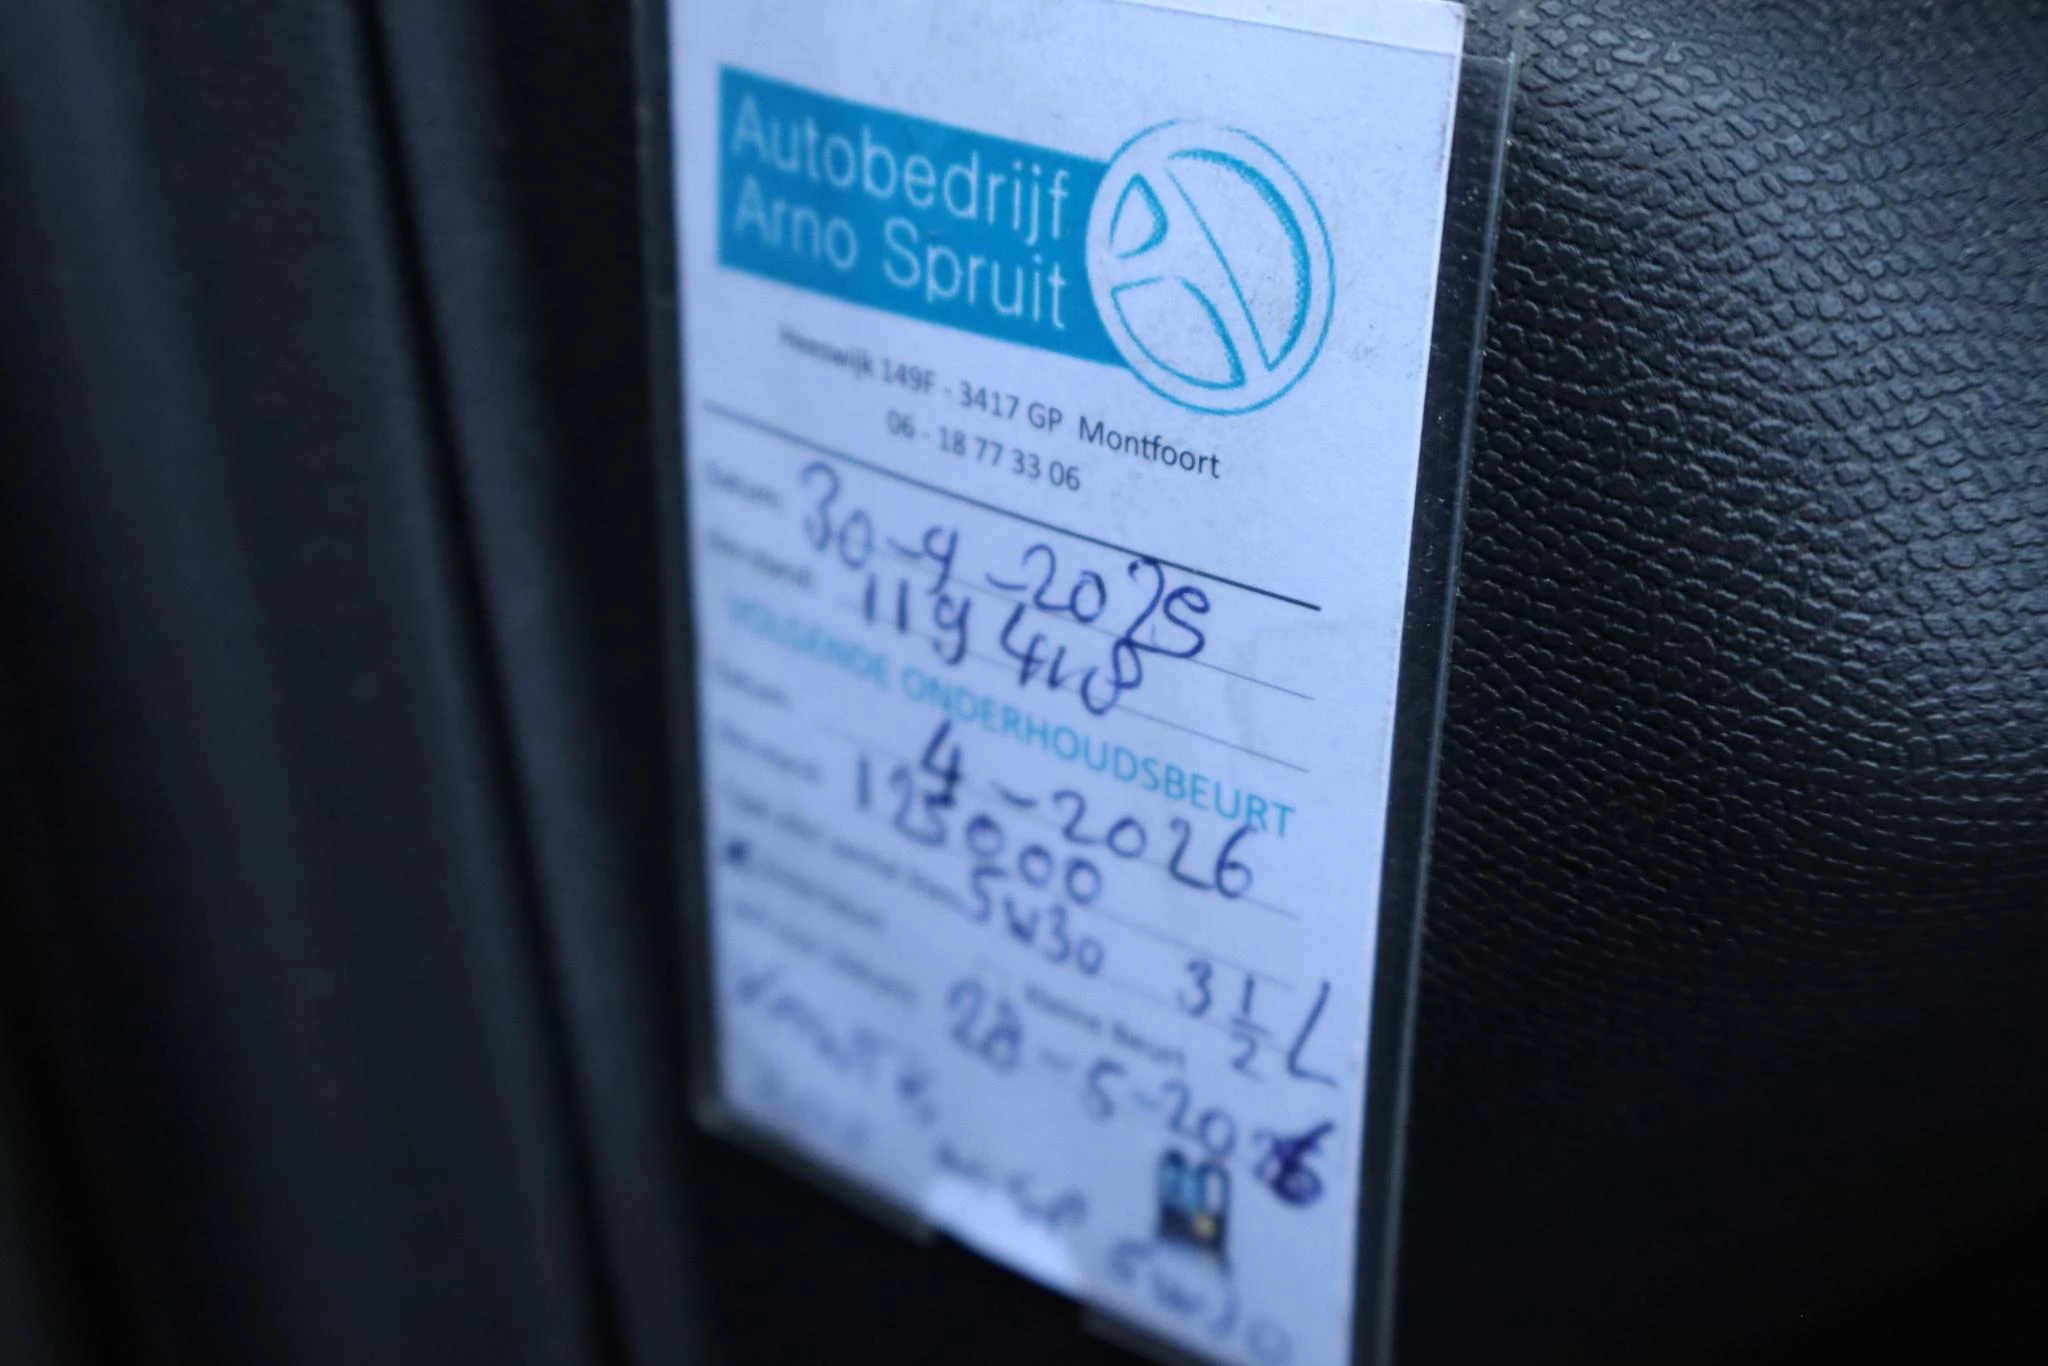 Autobedrijf
Arno Spruit
Heeswijk 149F - 3417 GP Montfoort
06 - 18 77 33 06
Datum: 30-9-2025
Km-stand: 119 418
VOLGENDE ONDERHOUDSBEURT
Datum: 4-2026
Km-stand: 125000
5W30 3 1/2 L
Kleine beurt
28-5-2026
5W30